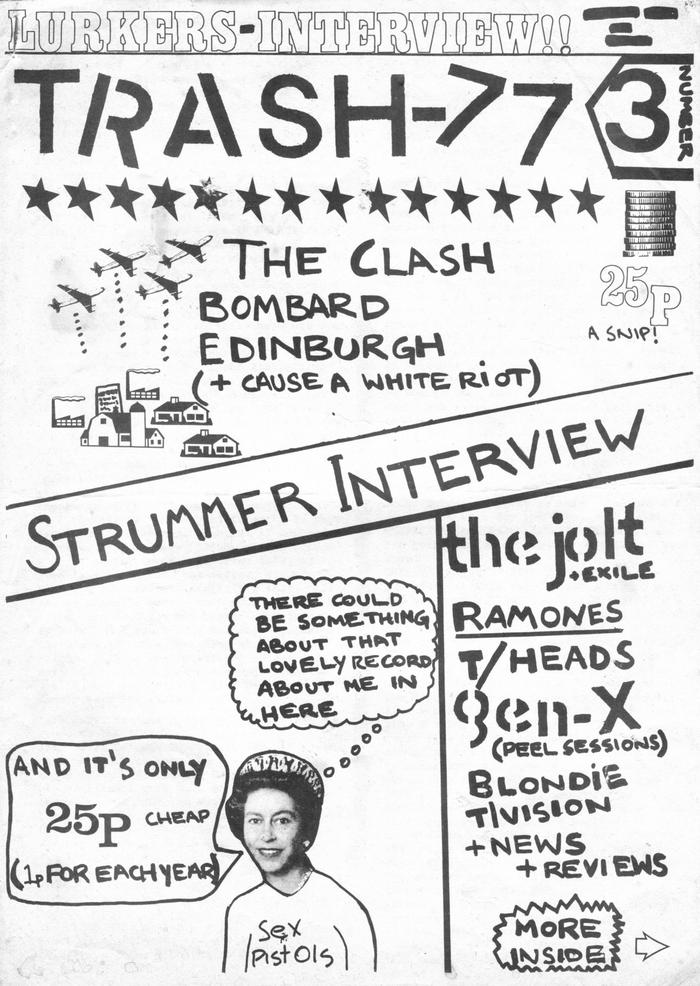 LURKERS-INTERVIEW!!
TRASH-77
NUMBER
3
THE CLASH
BOMBARD
EDINBURGH
(+ CAUSE A WHITE RIOT)
25p
A SNIP!
STRUMMER INTERVIEW
the jolt
+EXILE
RAMONES
T/HEADS
gen-X
(PEEL SESSIONS)
BLONDIE
T/VISION
+NEWS
+REVIEWS
MORE
INSIDE
THERE COULD
BE SOMETHING
ABOUT THAT
LOVELY RECORD
ABOUT ME IN
HERE
AND IT'S ONLY
25p CHEAP
(1p FOR EACH YEAR)
Sex
PistOls